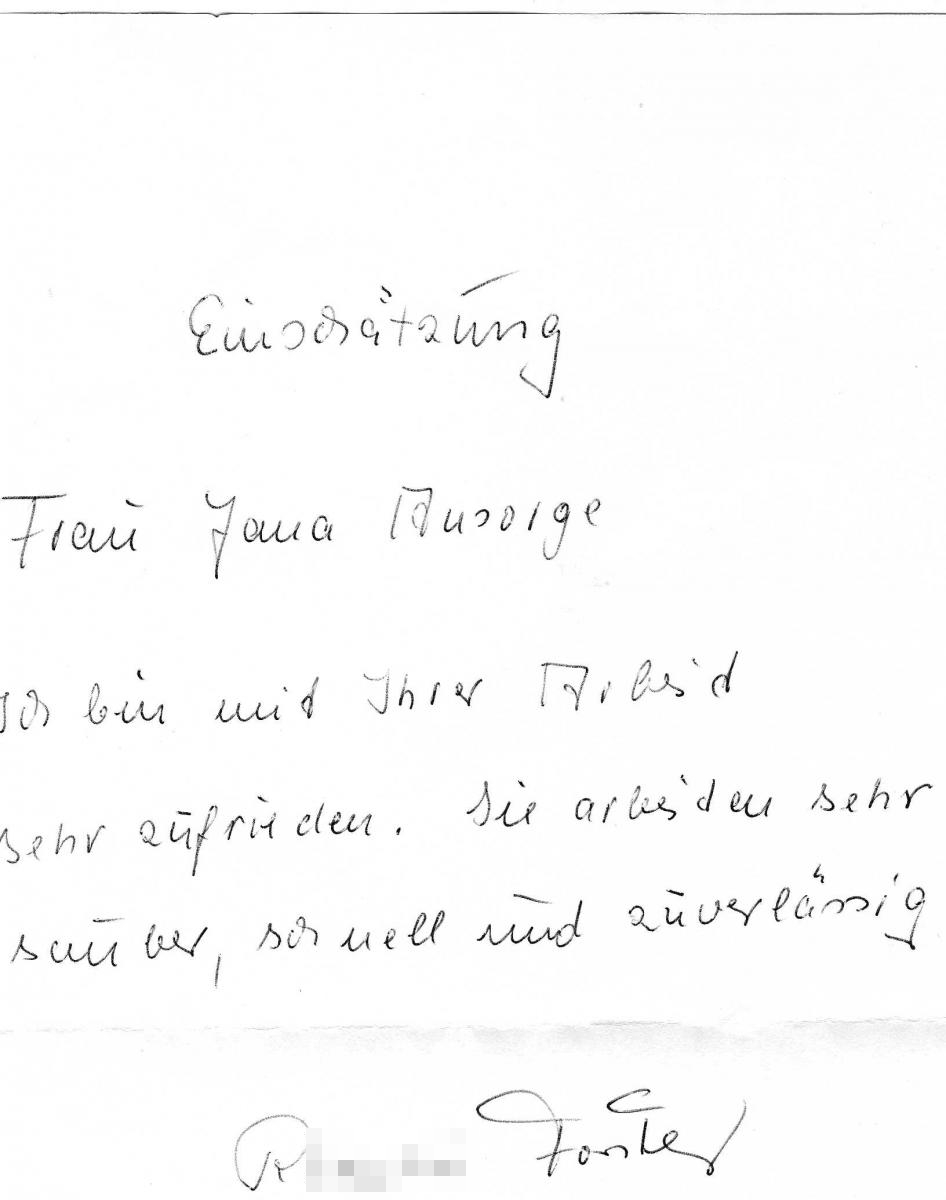 Einschätzung
Frau Jana Ansorge
Ich bin mit Ihrer Arbeit
sehr zufrieden. Sie arbeiten sehr
sauber, schnell und zuverlässig